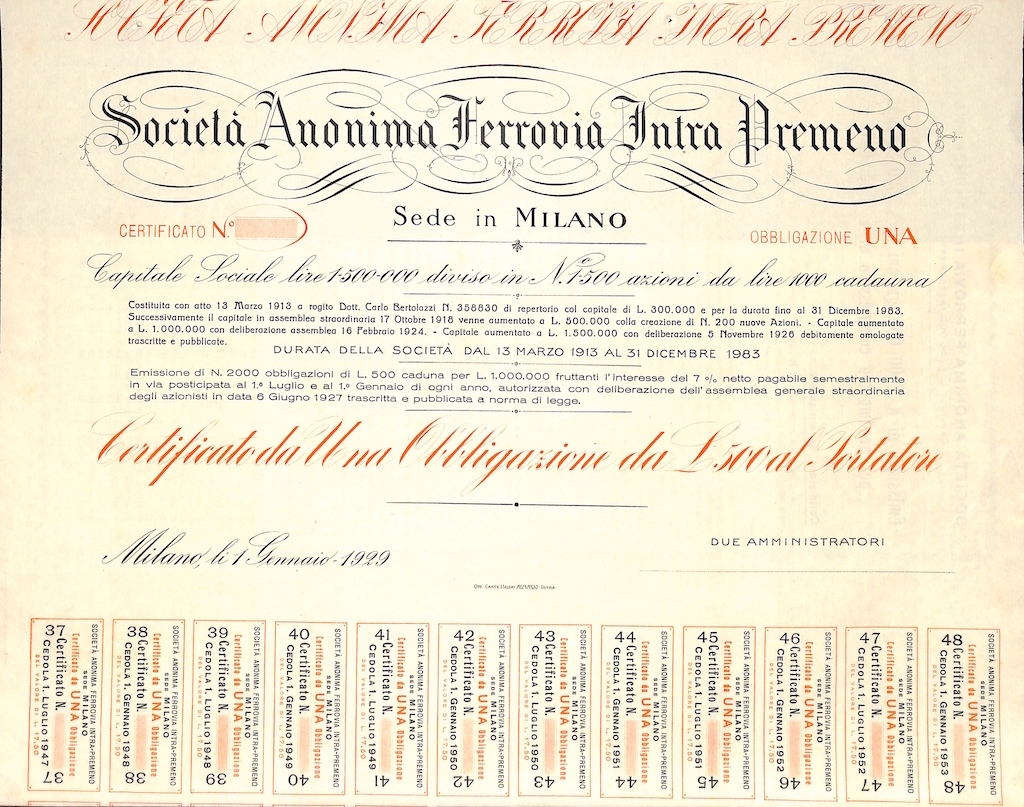 SOCIETÀ ANONIMA FERROVIA INTRA PREMENO
Società Anonima Ferrovia Intra Premeno
Sede in MILANO
CERTIFICATO N.º
OBBLIGAZIONE UNA
Capitale Sociale lire 1·500·000 diviso in N.º 1·500 azioni da lire 1000 cadauna
Costituita con atto 13 Marzo 1913 a rogito Dott. Carlo Bertolazzi N. 358830 di repertorio col capitale di L. 300.000 e per la durata fino al 31 Dicembre 1983.
Successivamente il capitale in assemblea straordinaria 17 Ottobre 1918 venne aumentato a L. 500.000 colla creazione di N. 200 nuove Azioni. - Capitale aumentato
a L. 1.000.000 con deliberazione assemblea 16 Febbraio 1924. - Capitale aumentato a L. 1.500.000 con deliberazione 5 Novembre 1926 debitamente omologate
trascritte e pubblicate.
DURATA DELLA SOCIETÀ DAL 13 MARZO 1913 AL 31 DICEMBRE 1983
Emissione di N. 2000 obbligazioni di L. 500 caduna per L. 1.000.000 fruttanti l'interesse del 7 % netto pagabile semestralmente
in via posticipata al 1.º Luglio e al 1.º Gennaio di ogni anno, autorizzata con deliberazione dell'assemblea generale straordinaria
degli azionisti in data 6 Giugno 1927 trascritta e pubblicata a norma di legge.
Certificato da Una Obbligazione da L. 500 al Portatore
Milano, li 1 Gennaio 1929
DUE AMMINISTRATORI
SOCIETÀ ANONIMA FERROVIA INTRA-PREMENO
SEDE MILANO
Certificato da UNA Obbligazione
37 Certificato N. 37
CEDOLA 1. LUGLIO 1947
DEL VALORE DI L. 17,50
SOCIETÀ ANONIMA FERROVIA INTRA-PREMENO
SEDE MILANO
Certificato da UNA Obbligazione
38 Certificato N. 38
CEDOLA 1. GENNAIO 1948
DEL VALORE DI L. 17,50
SOCIETÀ ANONIMA FERROVIA INTRA-PREMENO
SEDE MILANO
Certificato da UNA Obbligazione
39 Certificato N. 39
CEDOLA 1. LUGLIO 1948
DEL VALORE DI L. 17,50
SOCIETÀ ANONIMA FERROVIA INTRA-PREMENO
SEDE MILANO
Certificato da UNA Obbligazione
40 Certificato N. 40
CEDOLA 1. GENNAIO 1949
DEL VALORE DI L. 17,50
SOCIETÀ ANONIMA FERROVIA INTRA-PREMENO
SEDE MILANO
Certificato da UNA Obbligazione
41 Certificato N. 41
CEDOLA 1. LUGLIO 1949
DEL VALORE DI L. 17,50
SOCIETÀ ANONIMA FERROVIA INTRA-PREMENO
SEDE MILANO
Certificato da UNA Obbligazione
42 Certificato N. 42
CEDOLA 1. GENNAIO 1950
DEL VALORE DI L. 17,50
SOCIETÀ ANONIMA FERROVIA INTRA-PREMENO
SEDE MILANO
Certificato da UNA Obbligazione
43 Certificato N. 43
CEDOLA 1. LUGLIO 1950
DEL VALORE DI L. 17,50
SOCIETÀ ANONIMA FERROVIA INTRA-PREMENO
SEDE MILANO
Certificato da UNA Obbligazione
44 Certificato N. 44
CEDOLA 1. GENNAIO 1951
DEL VALORE DI L. 17,50
SOCIETÀ ANONIMA FERROVIA INTRA-PREMENO
SEDE MILANO
Certificato da UNA Obbligazione
45 Certificato N. 45
CEDOLA 1. LUGLIO 1951
DEL VALORE DI L. 17,50
SOCIETÀ ANONIMA FERROVIA INTRA-PREMENO
SEDE MILANO
Certificato da UNA Obbligazione
46 Certificato N. 46
CEDOLA 1. GENNAIO 1952
DEL VALORE DI L. 17,50
SOCIETÀ ANONIMA FERROVIA INTRA-PREMENO
SEDE MILANO
Certificato da UNA Obbligazione
47 Certificato N. 47
CEDOLA 1. LUGLIO 1952
DEL VALORE DI L. 17,50
SOCIETÀ ANONIMA FERROVIA INTRA-PREMENO
SEDE MILANO
Certificato da UNA Obbligazione
48 Certificato N. 48
CEDOLA 1. GENNAIO 1953
DEL VALORE DI L. 17,50